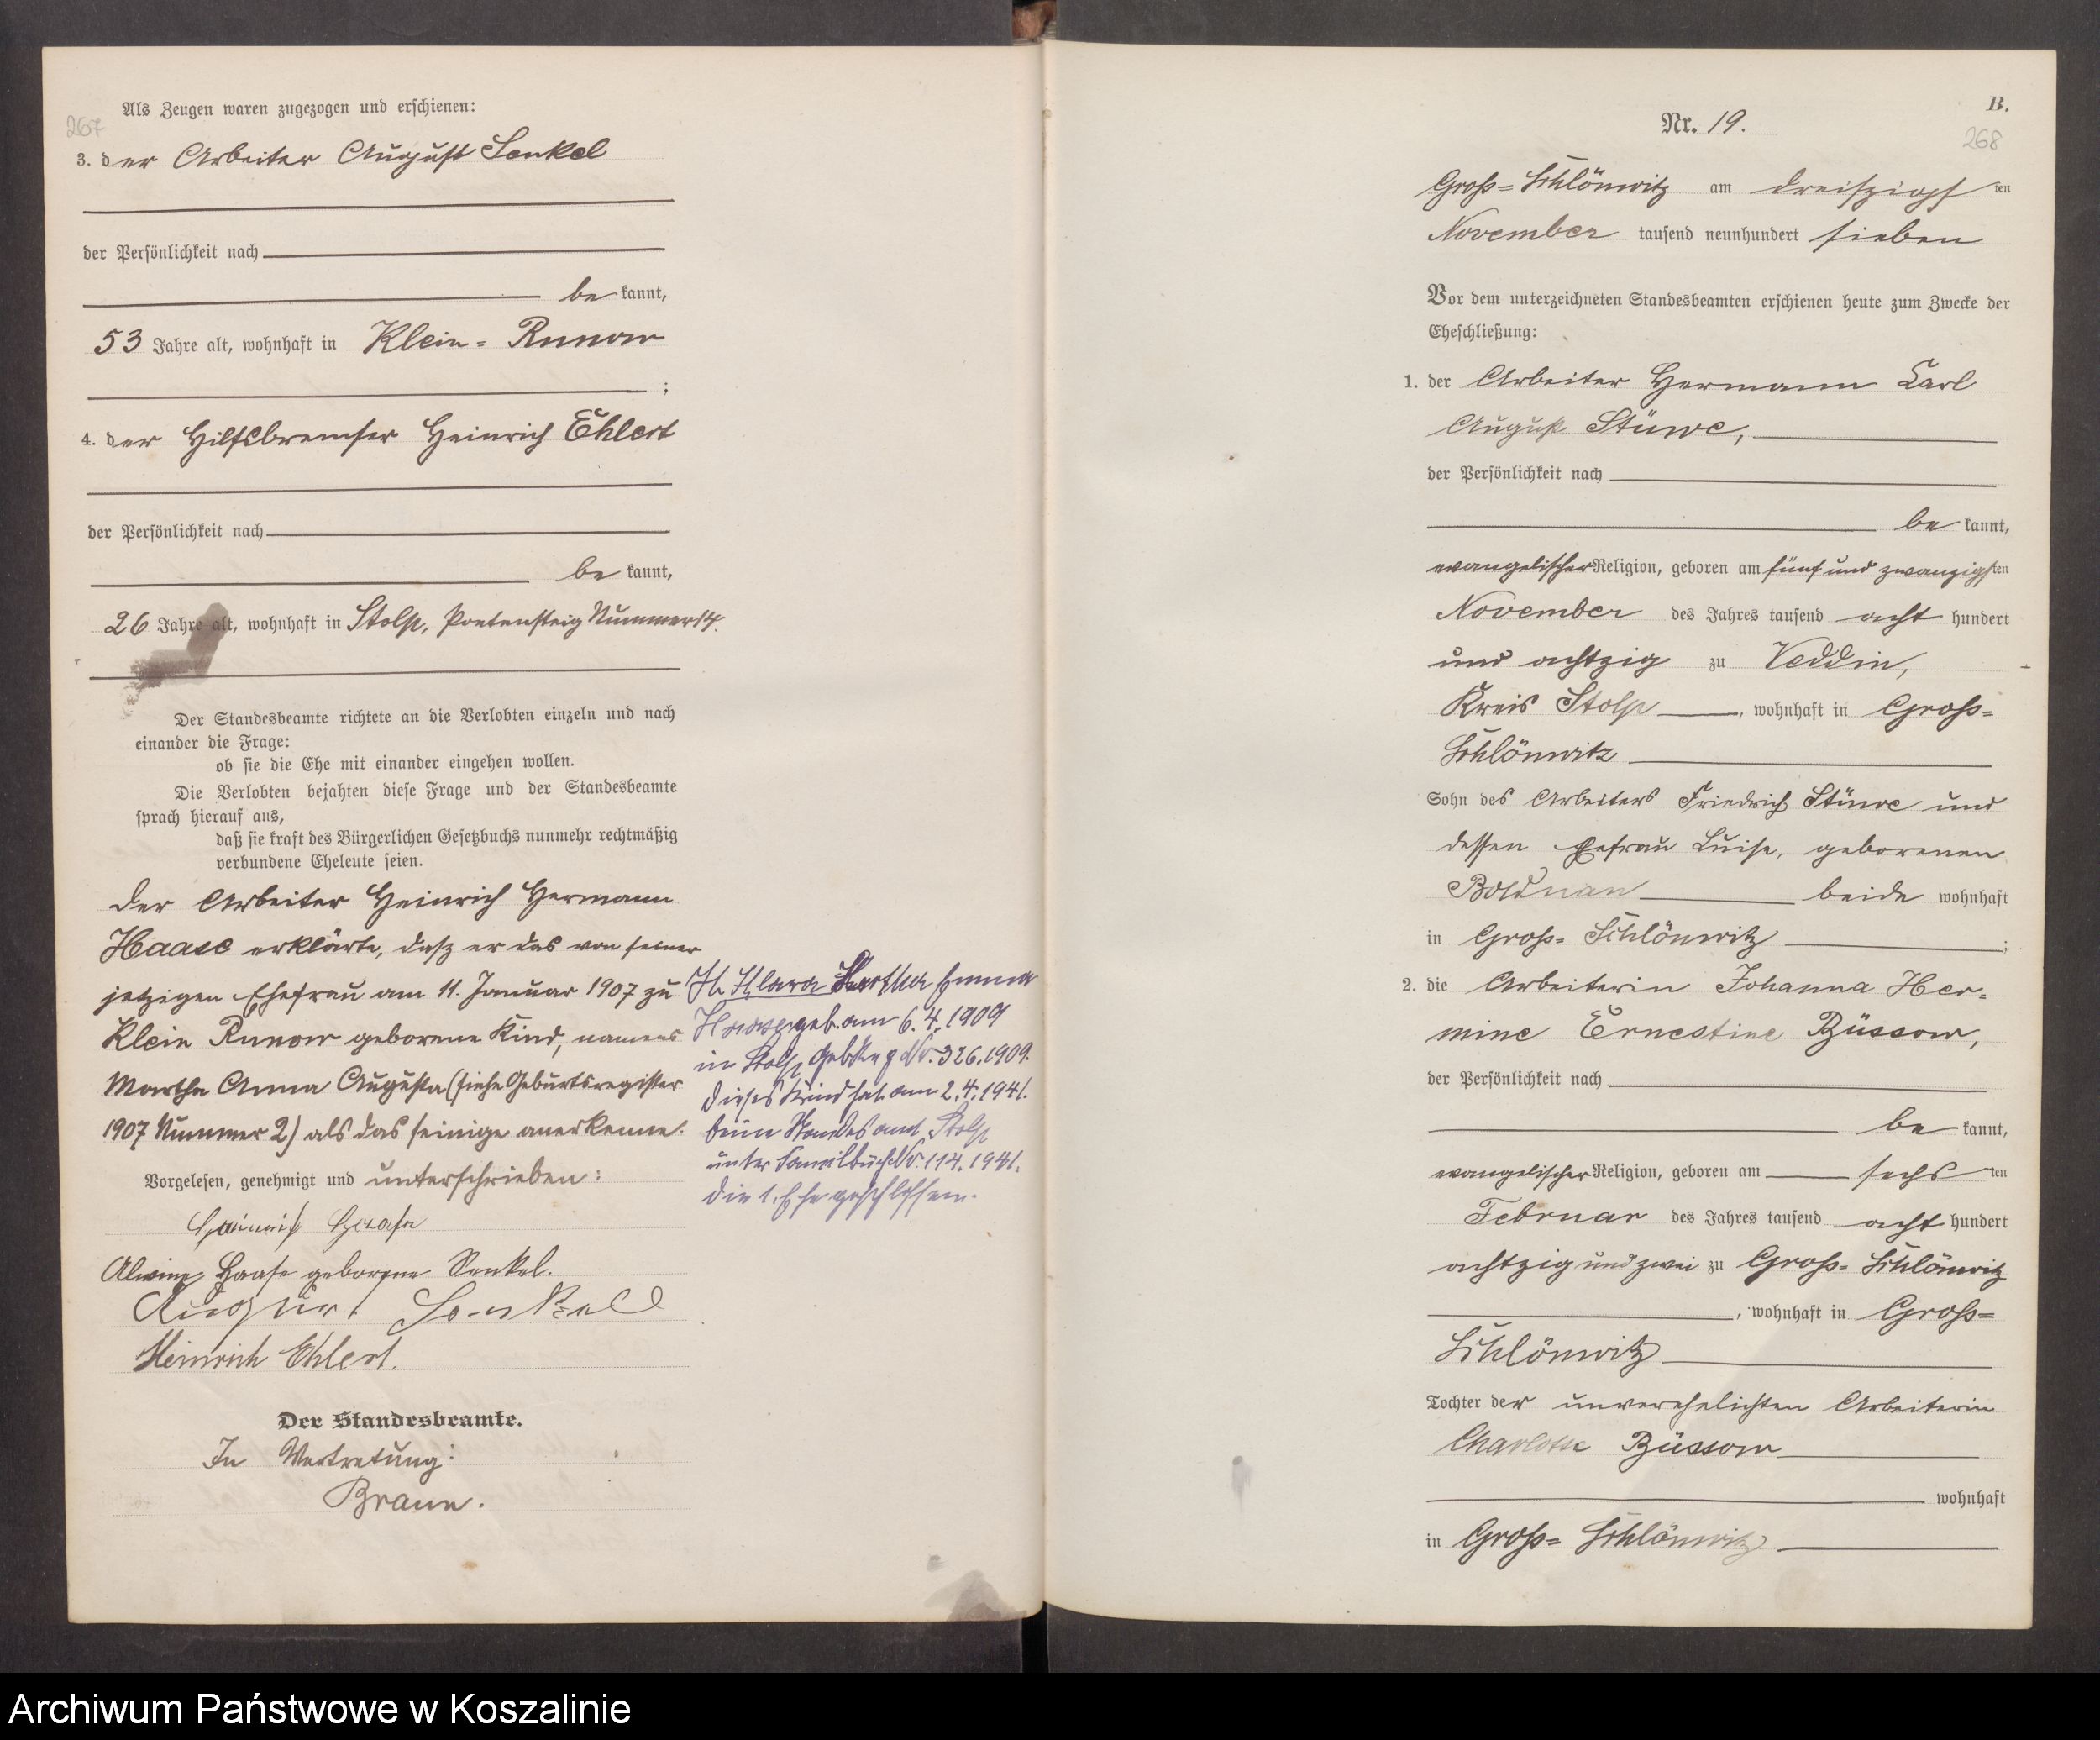 267
Als Zeugen waren zugezogen und erschienen:
3. der Arbeiter August Senkel
der Persönlichkeit nach
be kannt,
53 Jahre alt, wohnhaft in Klein- Runow
;
4. der Hilfsbremser Heinrich Ehlert
der Persönlichkeit nach
be kannt,
26 Jahre alt, wohnhaft in Stolp, Poetensteig Nummer 14.
Der Standesbeamte richtete an die Verlobten einzeln und nach
einander die Frage:
ob sie die Ehe mit einander eingehen wollen.
Die Verlobten bejahten diese Frage und der Standesbeamte
sprach hierauf aus,
daß sie kraft des Bürgerlichen Gesetzbuchs nunmehr rechtmäßig
verbundene Eheleute seien.
Der Arbeiter Heinrich Hermann
Haase erklärte, dasz er das von seiner
jetzigen Ehefrau am 11. Januar 1907 zu
Klein Runow geborene Kind, namens
Martha Anna Augusta (siehe Geburtsregister
1907 Nummer 2) als das seinige anerkenne.
Vorgelesen, genehmigt und unterschrieben:
Heinrich Haase
Alwine Haase geborene Senkel.
August Senkel
Heinrich Ehlert.
Der Standesbeamte.
In Vertretung:
Braun.
Klara Hertha Emma
Haase geb. am 6.4.1909
in Stolp Nr. 326.1909.
Dieses Kind hat am 2.4.1941.
beim Standesamt Stolp
unter Familbuch Nr. 114.1941.
die 1. Ehe geschlossen.
B.
268
Nr. 19.
Gross- Schlönwitz am dreiszigst ten
November tausend neunhundert sieben
Vor dem unterzeichneten Standesbeamten erschienen heute zum Zwecke der
Eheschließung:
1. der Arbeiter Hermann Carl
August Stüwe,
der Persönlichkeit nach
be kannt,
evangelischer Religion, geboren am fünf und zwanzigsten
November des Jahres tausend acht hundert
und achtzig zu Veddin,
Kreis Stolp, wohnhaft in Gross-
Schlönwitz
Sohn des Arbeiters Friedrich Stüwe und
dessen Ehefrau Luise, geborenen
Boldnan beide wohnhaft
in Gross- Schlönwitz ;
2. die Arbeiterin Johanna Her-
mine Ernestine Büssow,
der Persönlichkeit nach
be kannt,
evangelischer Religion, geboren am sechs ten
Februar des Jahres tausend acht hundert
achtzig und zwei zu Gross- Schlönwitz
, wohnhaft in Gross-
Schlönwitz
Tochter der unverehelichten Arbeiterin
Charlotte Büssow
wohnhaft
in Gross- Schlönwitz
Archiwum Państwowe w Koszalinie